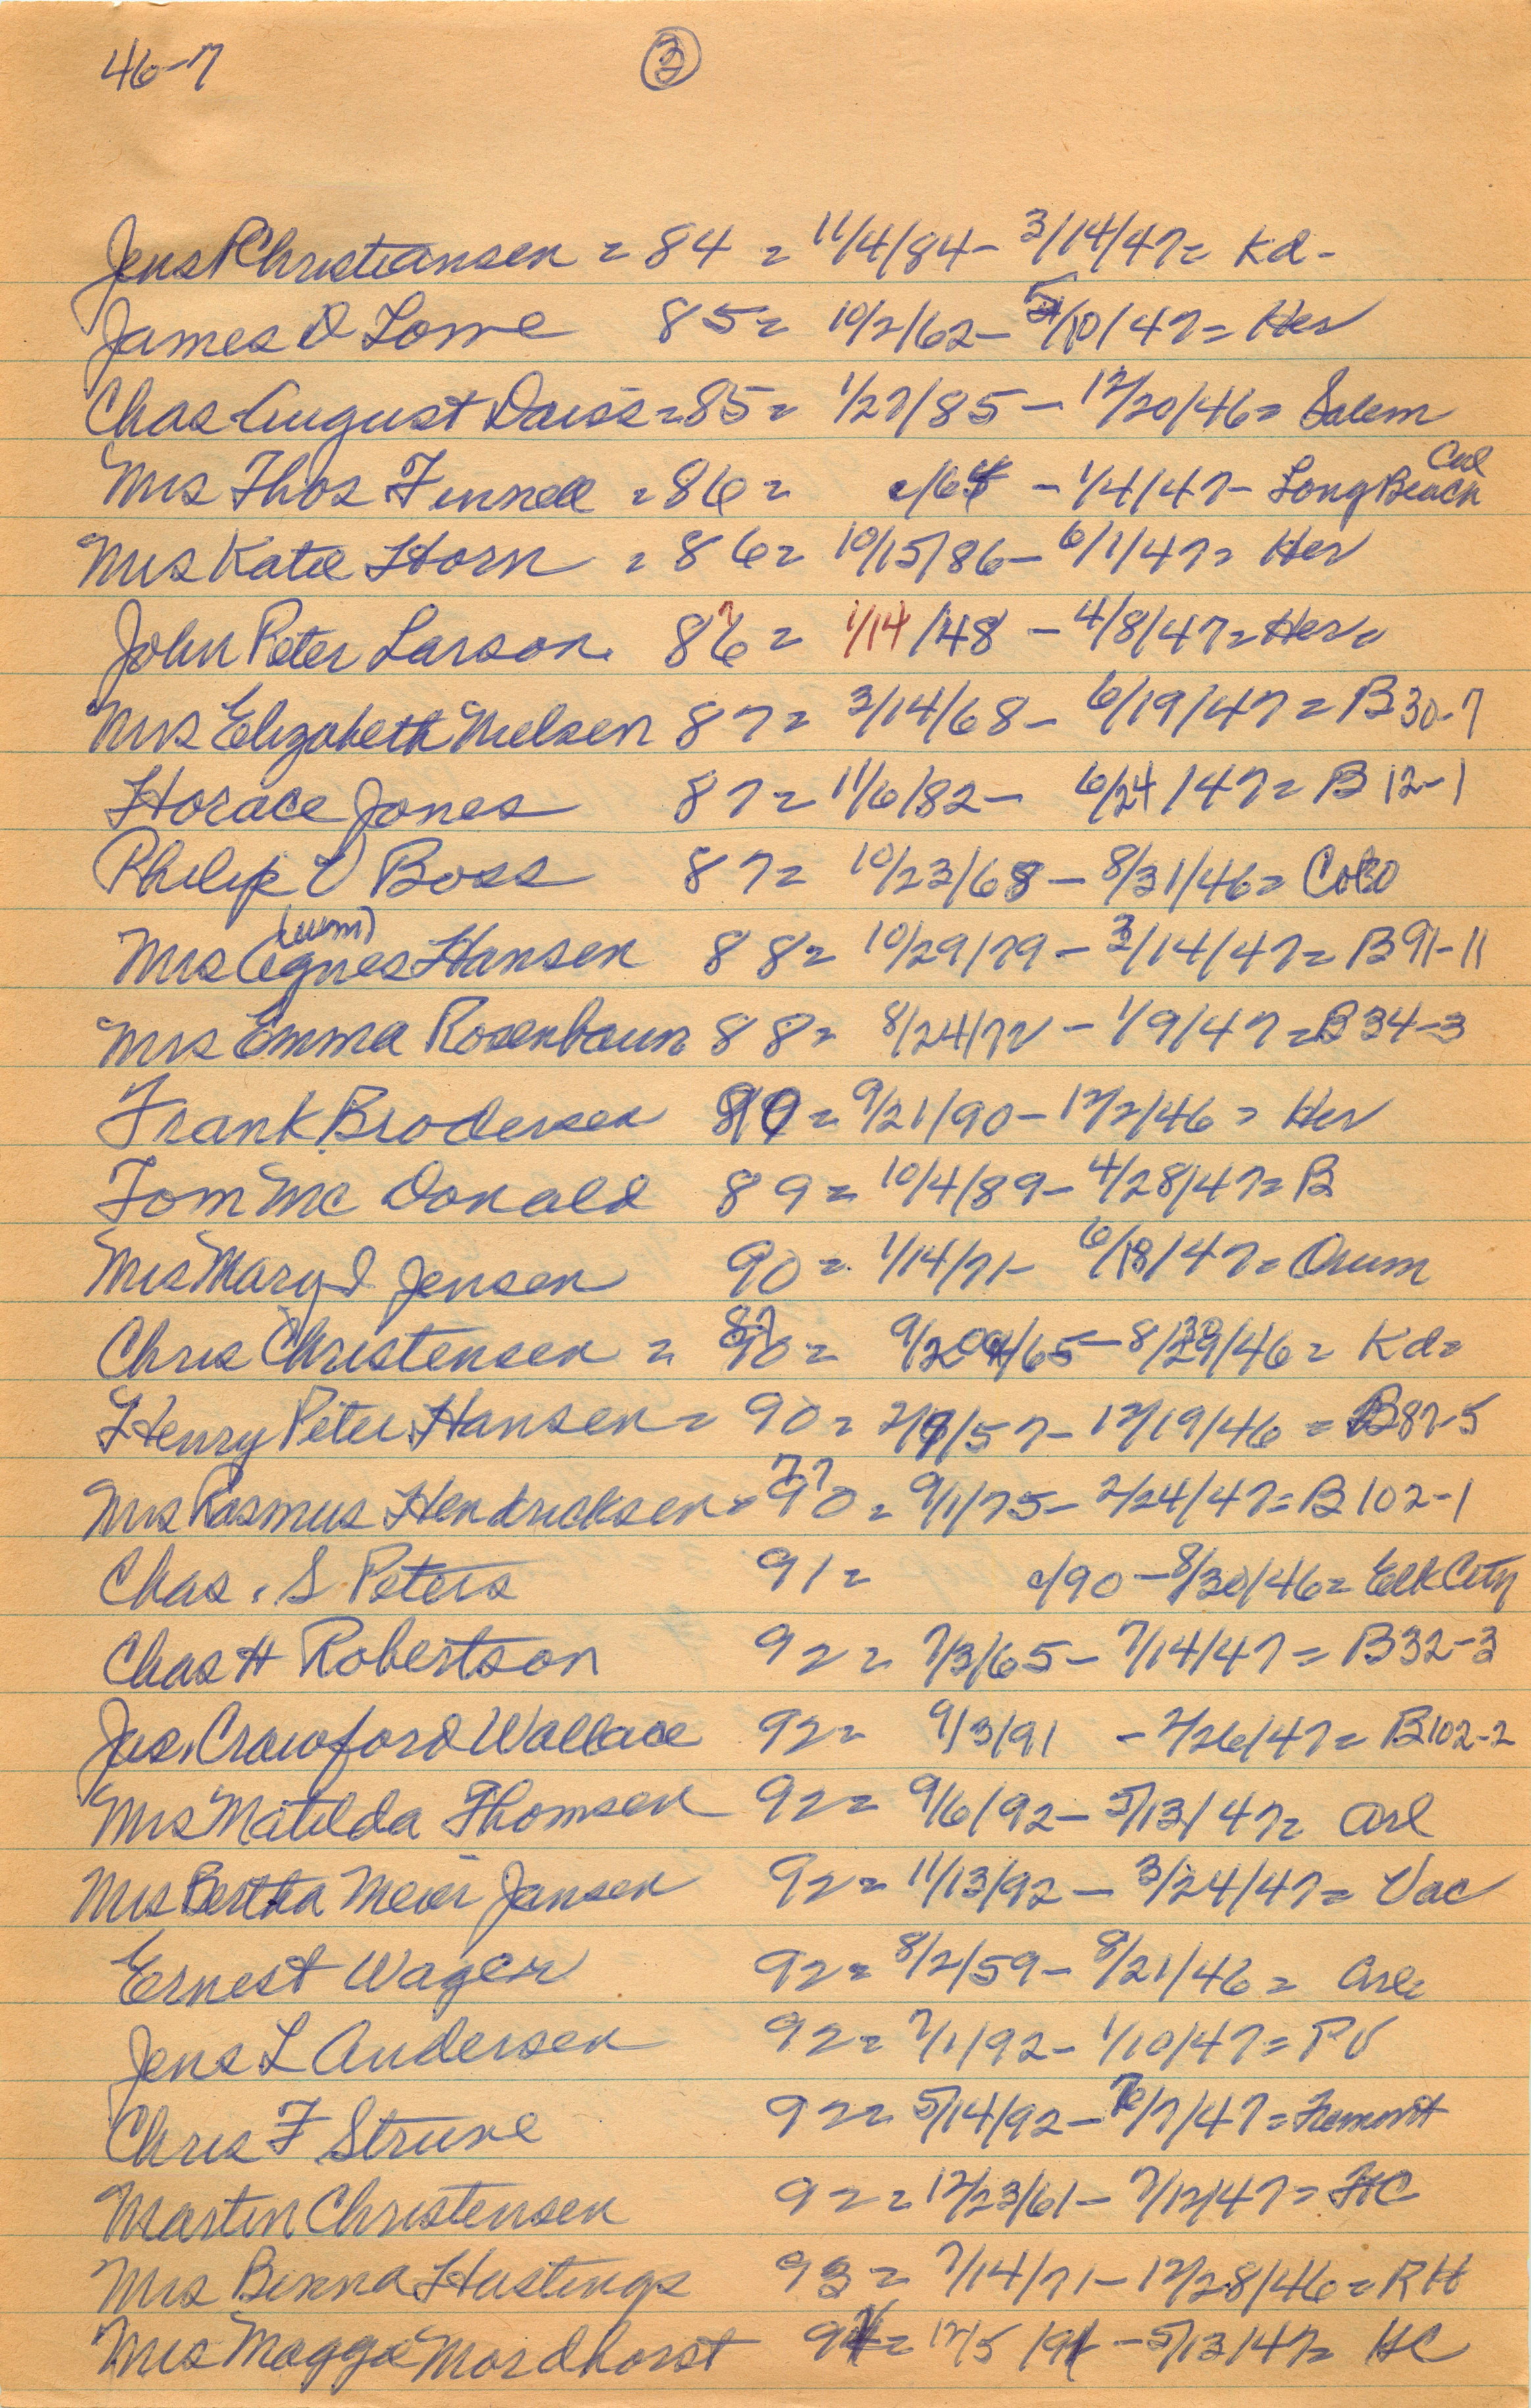 46-7 ③
Jens P Christiansen = 84 = 11/4/84 - 3/14/47 = Kd -
James D Lowe 85 = 10/2/62 - 5/10/47 = Her
Chas August Daiss = 85 = 1/27/85 - 12/20/46 = Salem
Mrs Thos Finnell = 86 = c/64 - 1/4/47 - Long Beach Cal
Mrs Katie Horn = 86 = 10/15/86 - 6/1/47 = Her
John Peter Larson 86 = 1/14/48 - 4/8/47 = Her =
Mrs Elizabeth Nielsen 87 = 3/14/68 - 6/19/47 = B 30-7
Horace Jones 87 = 11/6/82 - 6/24/47 = B 12-1
Philip V Boss 87 = 10/23/68 - 8/31/46 = Colo
Mrs Agnes (Wm) Hansen 88 = 10/29/79 - 3/14/47 = B 91-11
Mrs Emma Rosenbaum 88 = 8/24/72 - 1/9/47 = B 34-3
Frank Brodersen = 9/21/90 - 12/2/46 = Her
Tom Mc Donald 89 = 10/4/89 - 4/28/47 = B
Mrs Mary I Jensen 90 = 1/14/71 - 6/18/47 = Orum
Chris Christensen = 87 90 = 9/20/65 - 8/29/46 = Kd =
Henry Peter Hansen = 90 = 2/9/57 - 12/19/46 = B 87-5
Mrs Rasmus Hendricksen = 77 90 = 9/1/75 - 2/24/47 = B 102-1
Chas. S Peters 91 = c/90 - 8/30/46 = Elk City
Chas H Robertson 92 = 7/3/65 - 7/14/47 = B 32-3
Jas. Crawford Wallace 92 = 9/3/91 - 2/26/47 = B 102-2
Mrs Matilda Thomsen 92 = 9/6/92 - 5/13/47 = Arl
Mrs Bertha Meier Jansen 92 = 11/13/92 - 3/24/47 = Vac
Ernest Wager 92 = 8/2/59 - 8/21/46 = Arl =
Jens L Andersen 92 = 7/1/92 - 1/10/47 = PV
Chris F Struve 92 = 5/14/92 - /7/47 = Fremont
Martin Christensen 92 = 12/23/61 - 7/12/47 = HC
Mrs Binna Hastings 93 = 7/14/71 - 12/28/46 = RH
Mrs Maggie Mordhorst = 12/5/91 - 5/13/47 = HC